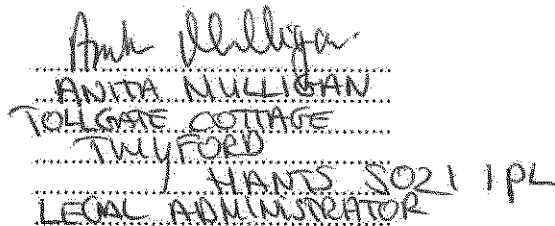 Anita Mulligan
ANITA MULLIGAN
TOLLGATE COTTAGE
TWYFORD
HANTS SO21 1PL
LEGAL ADMINISTRATOR